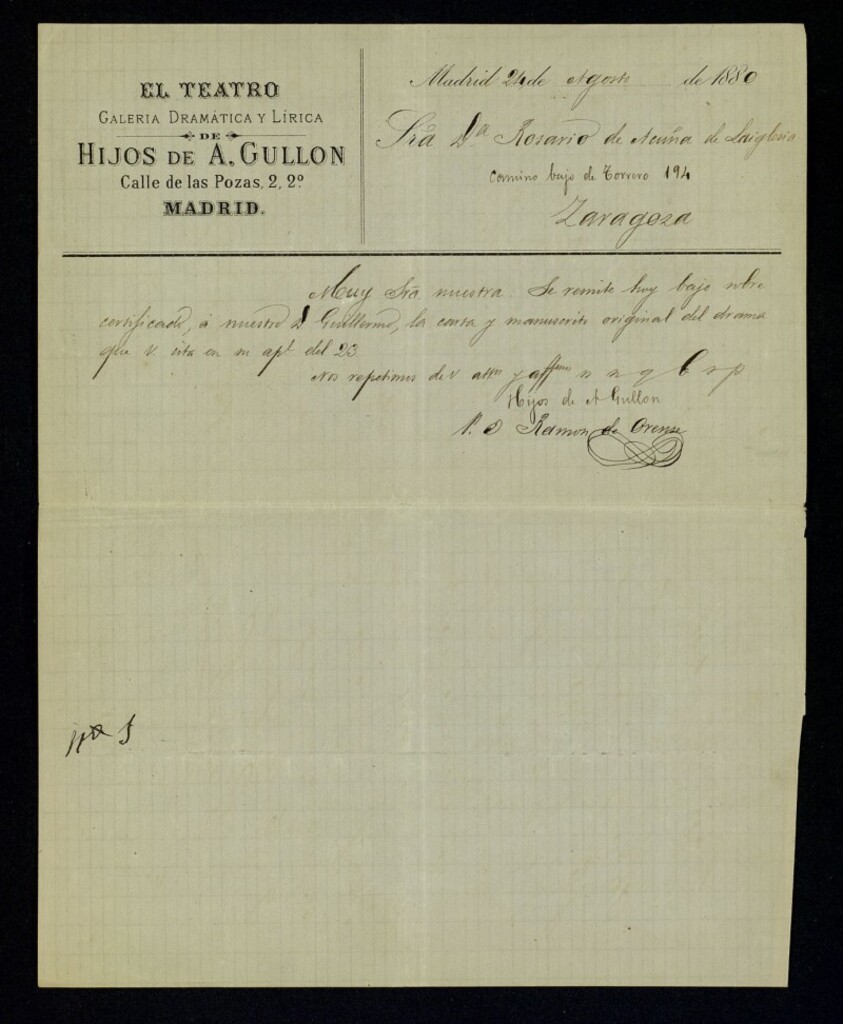 EL TEATRO
GALERIA DRAMÁTICA Y LÍRICA
DE
HIJOS DE A. GULLON
Calle de las Pozas, 2, 2.º
MADRID.
Madrid 24 de Agosto de 1880
Sra Dª Rosario de Acuña de Laiglesia
Camino bajo de Torrero 194
Zaragoza
Muy Sra nuestra. Se remite hoy bajo sobre
certificado, á nuestro D Guillermo, la carta y manuscrito original del drama
que V. cita en su apble del 23.
Nos repetimos de V attos y affmos s s q b s p
Hijos de A Gullon
P. O Ramon de Orense